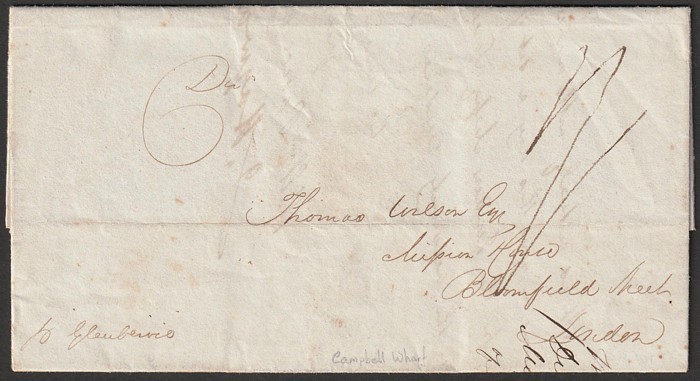 6
Thomas Wilson Esq
Mission House
Bloomfield Street
London
p Glenbervie
Campbell Wharf